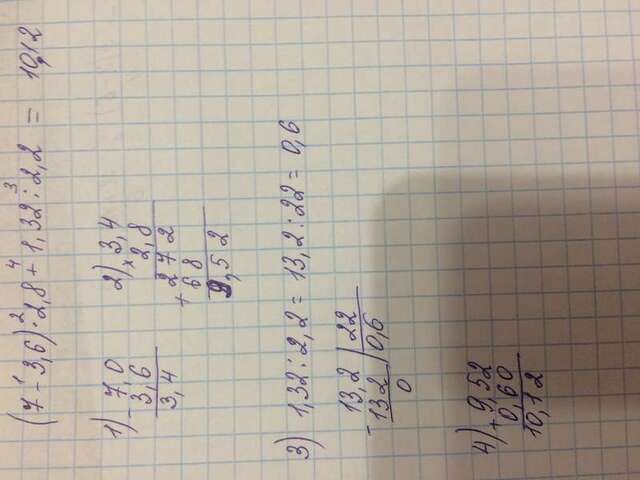 (7-3,6)·2,8+1,32:2,2 = 10,12
1 2 4 3
1) 7,0
- 3,6
3,4
2) 3,4
× 2,8
272
+ 68
9,52
3) 1,32:2,2 = 13,2:22 = 0,6
- 13,2 | 22
132 | 0,6
0
4) 9,52
+ 0,60
10,12